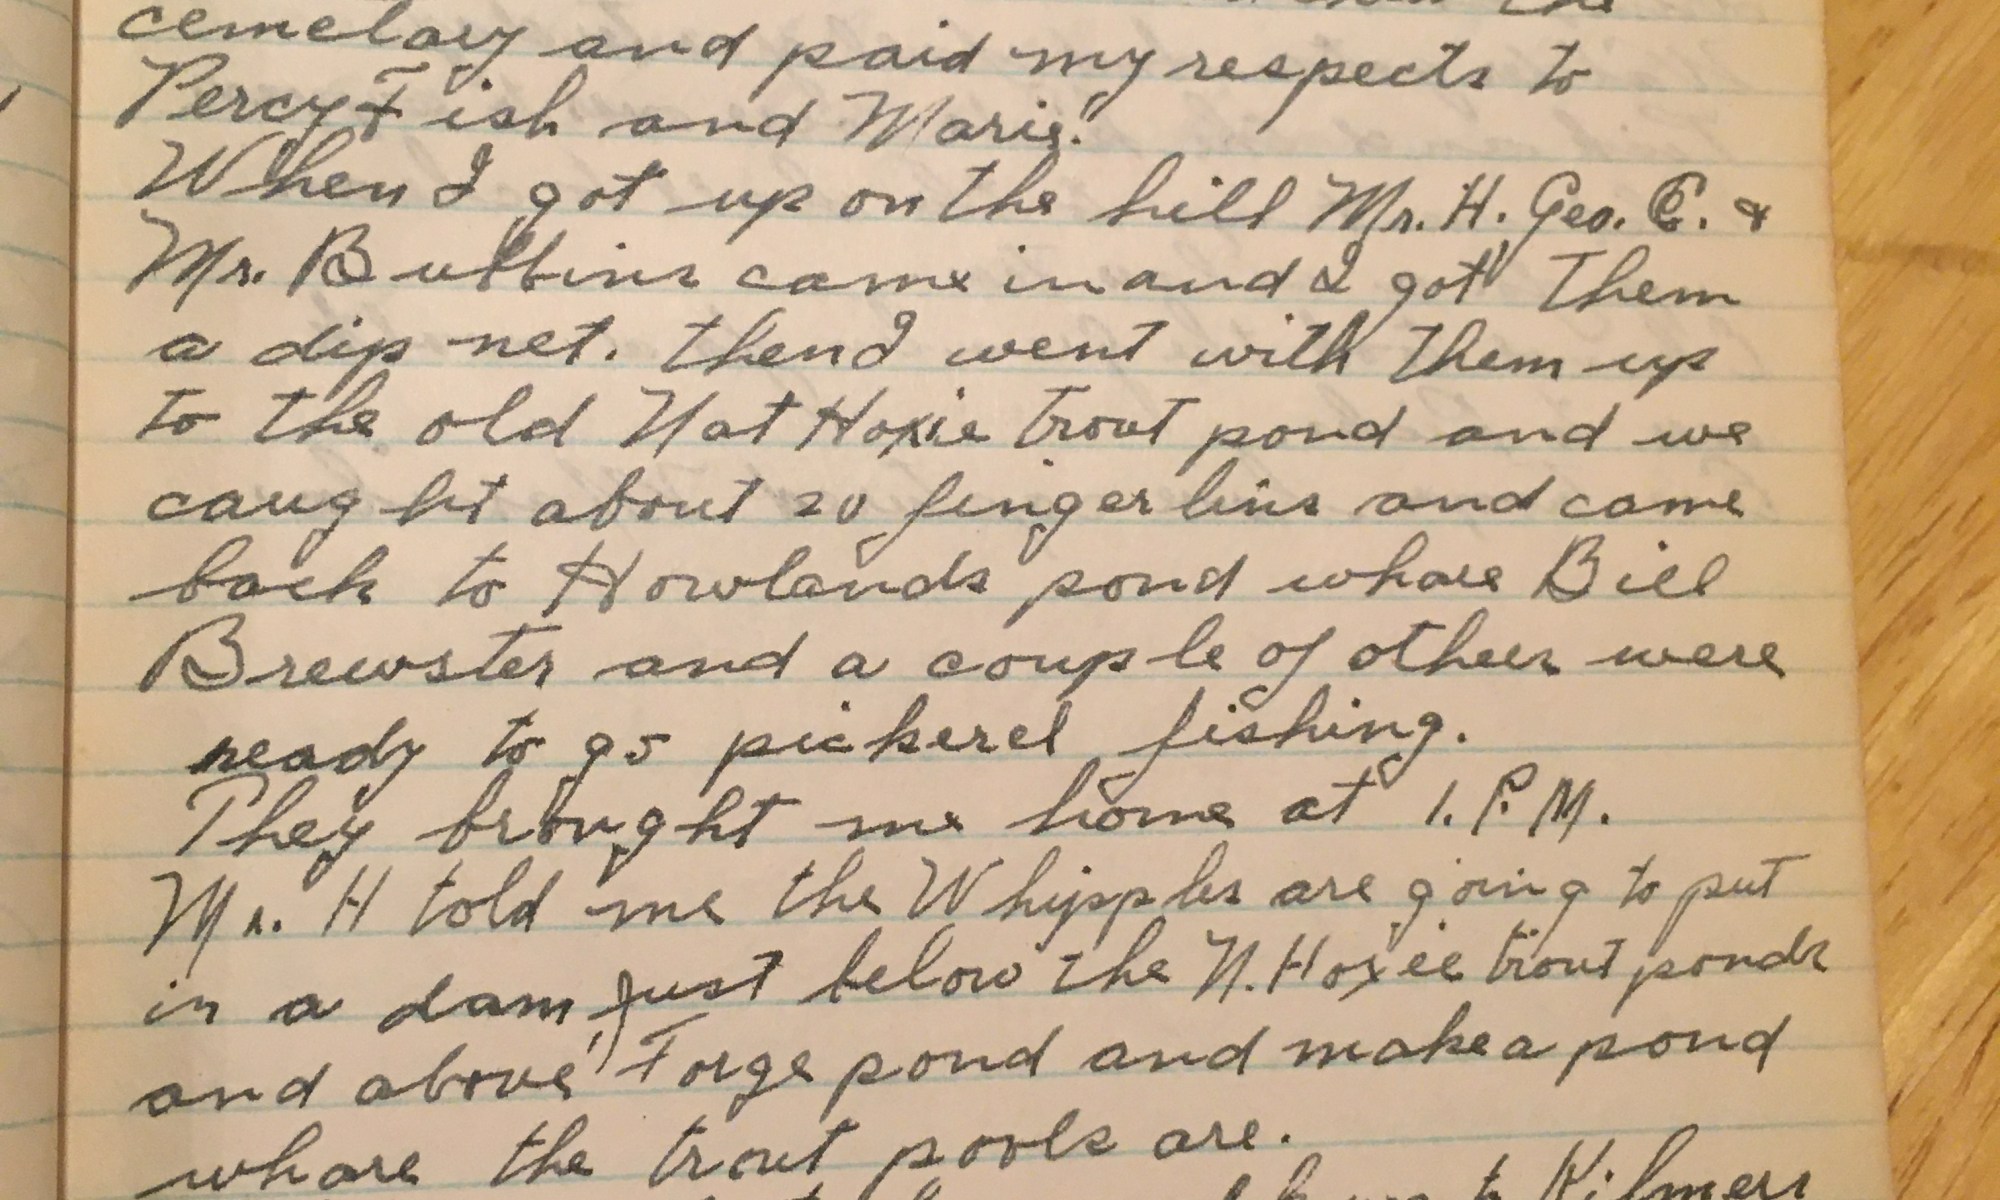 the
cemelary and paid my respects to
Percy Fish and Marie.
When I got up on the hill Mr. H. Geo. E. &
Mr. Buttins came in and I got them
a dip net. then I went with them up
to the old Nat Hoxie trout pond and we
caught about 20 fingerlins and came
back to Howlands pond whare Bill
Brewster and a couple of others were
ready to go pickerel fishing.
They brought me home at 1. P.M.
Mr. H told me the Whipples are going to put
in a dam, just below the N. Hoxie trout ponds
and above Forge pond and make a pond
whare the trout pools are.
to Kilmers